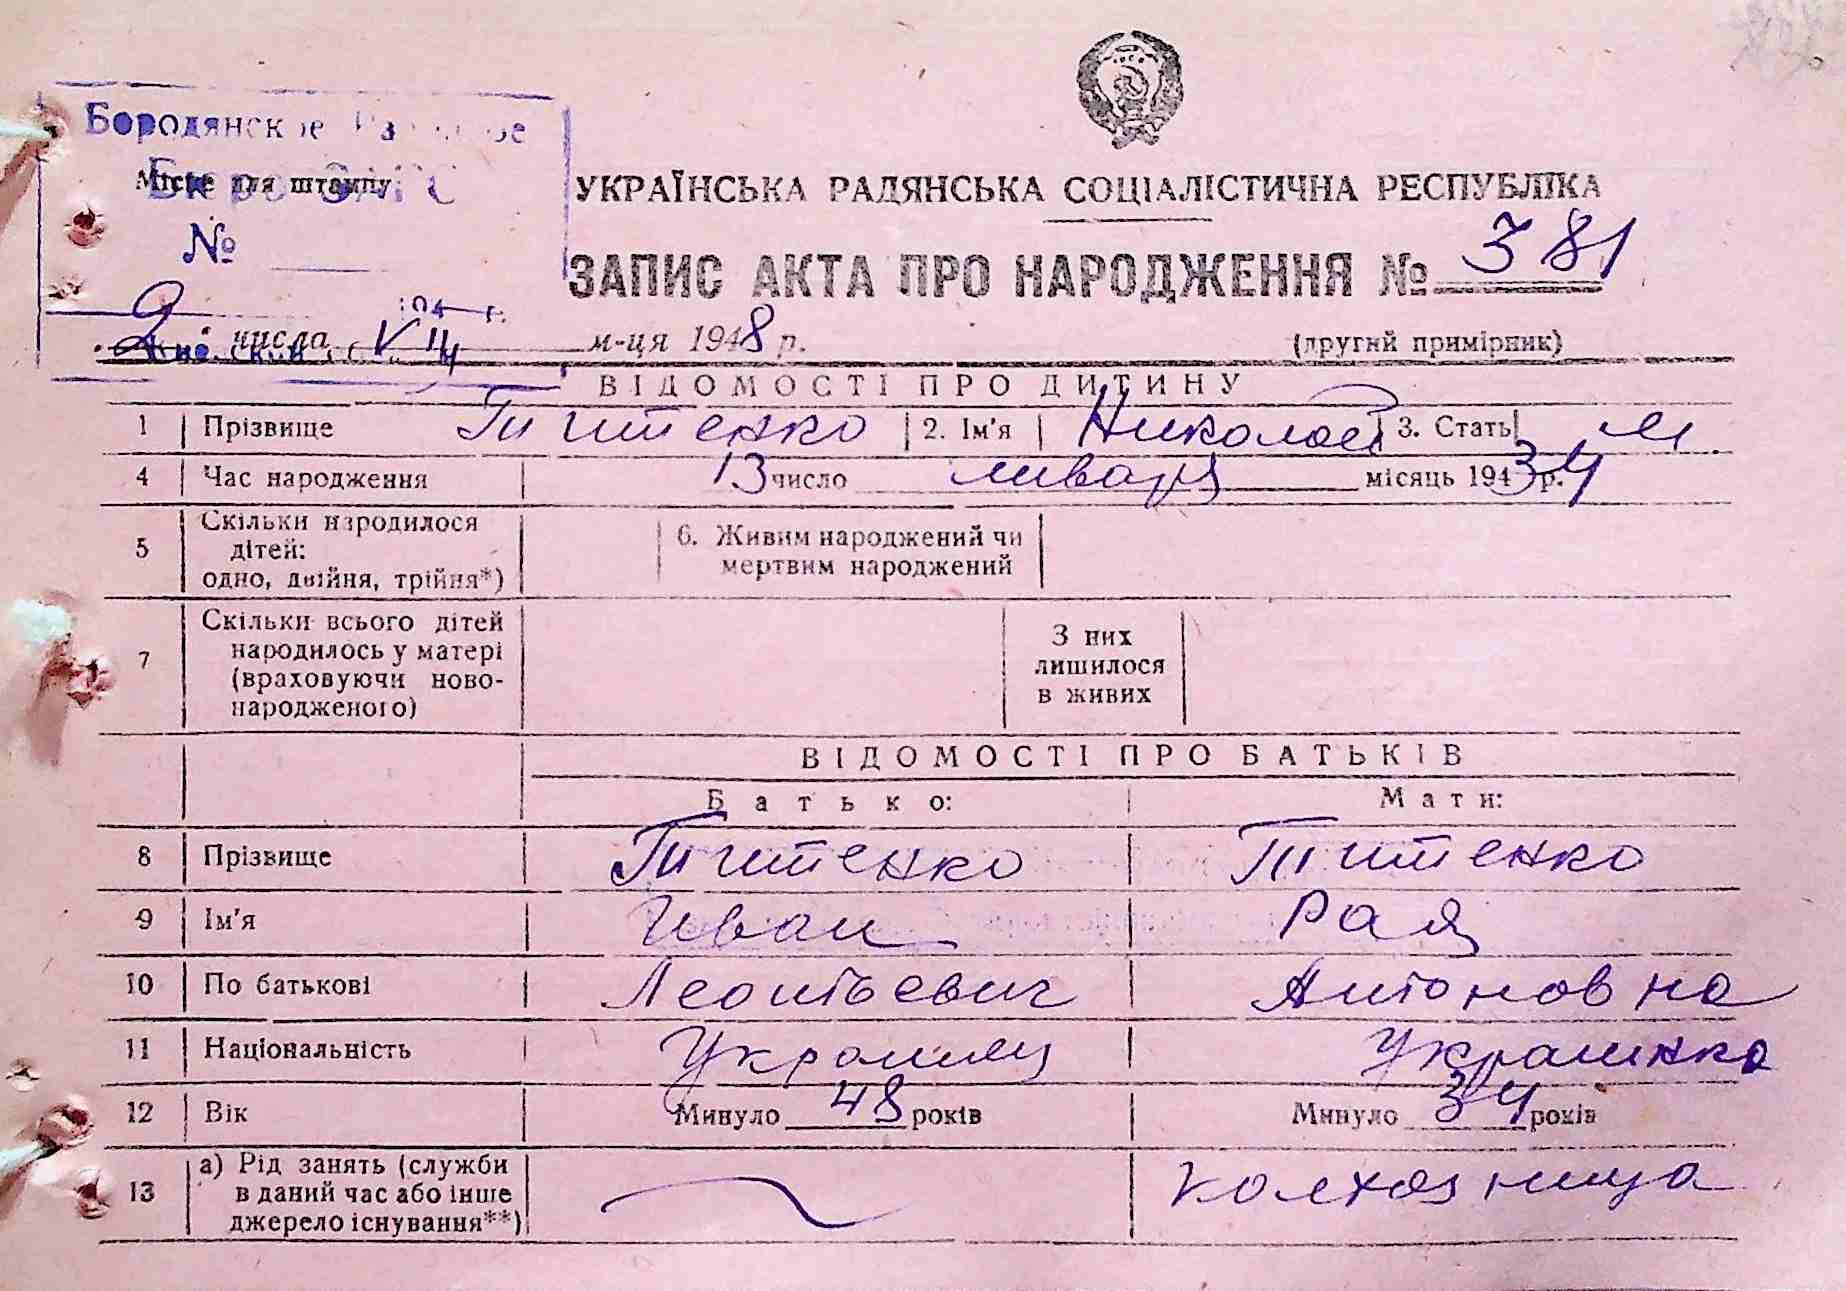 Бородянское
Бюро ЗАГС
Місце для штампу
№
УКРАЇНСЬКА РАДЯНСЬКА СОЦІАЛІСТИЧНА РЕСПУБЛІКА
ЗАПИС АКТА ПРО НАРОДЖЕННЯ № 381
194 г.
2 числа VIII м-ця 1948 р.
(другий примірник)
ВІДОМОСТІ ПРО ДИТИНУ
1 Прізвище Титенко 2. Ім'я Николай 3. Стать м
4 Час народження 13 число января місяць 1934 р.
5 Скільки народилося дітей: одно, двійня, трійня*) 6. Живим народжений чи мертвим народжений
7 Скільки всього дітей народилось у матері (враховуючи ново-народженого) З них лишилося в живих
ВІДОМОСТІ ПРО БАТЬКІВ
Батько: Мати:
8 Прізвище Титенко Титенко
9 Ім'я Иван Рая
10 По батькові Леонтьевич Антоновна
11 Національність Украинец Украинка
12 Вік Минуло 48 років Минуло 34 років
13 а) Рід занять (служби в даний час або інше джерело існування**) колхозница